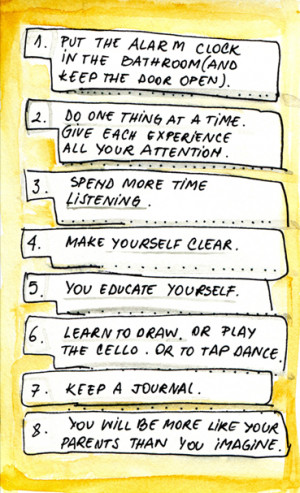 1. PUT THE ALARM CLOCK
IN THE BATHROOM (AND
KEEP THE DOOR OPEN).
2. DO ONE THING AT A TIME.
GIVE EACH EXPERIENCE
ALL YOUR ATTENTION.
3. SPEND MORE TIME
LISTENING.
4. MAKE YOURSELF CLEAR.
5. YOU EDUCATE YOURSELF.
6. LEARN TO DRAW. OR PLAY
THE CELLO. OR TO TAP DANCE.
7. KEEP A JOURNAL.
8. YOU WILL BE MORE LIKE YOUR
PARENTS THAN YOU IMAGINE.